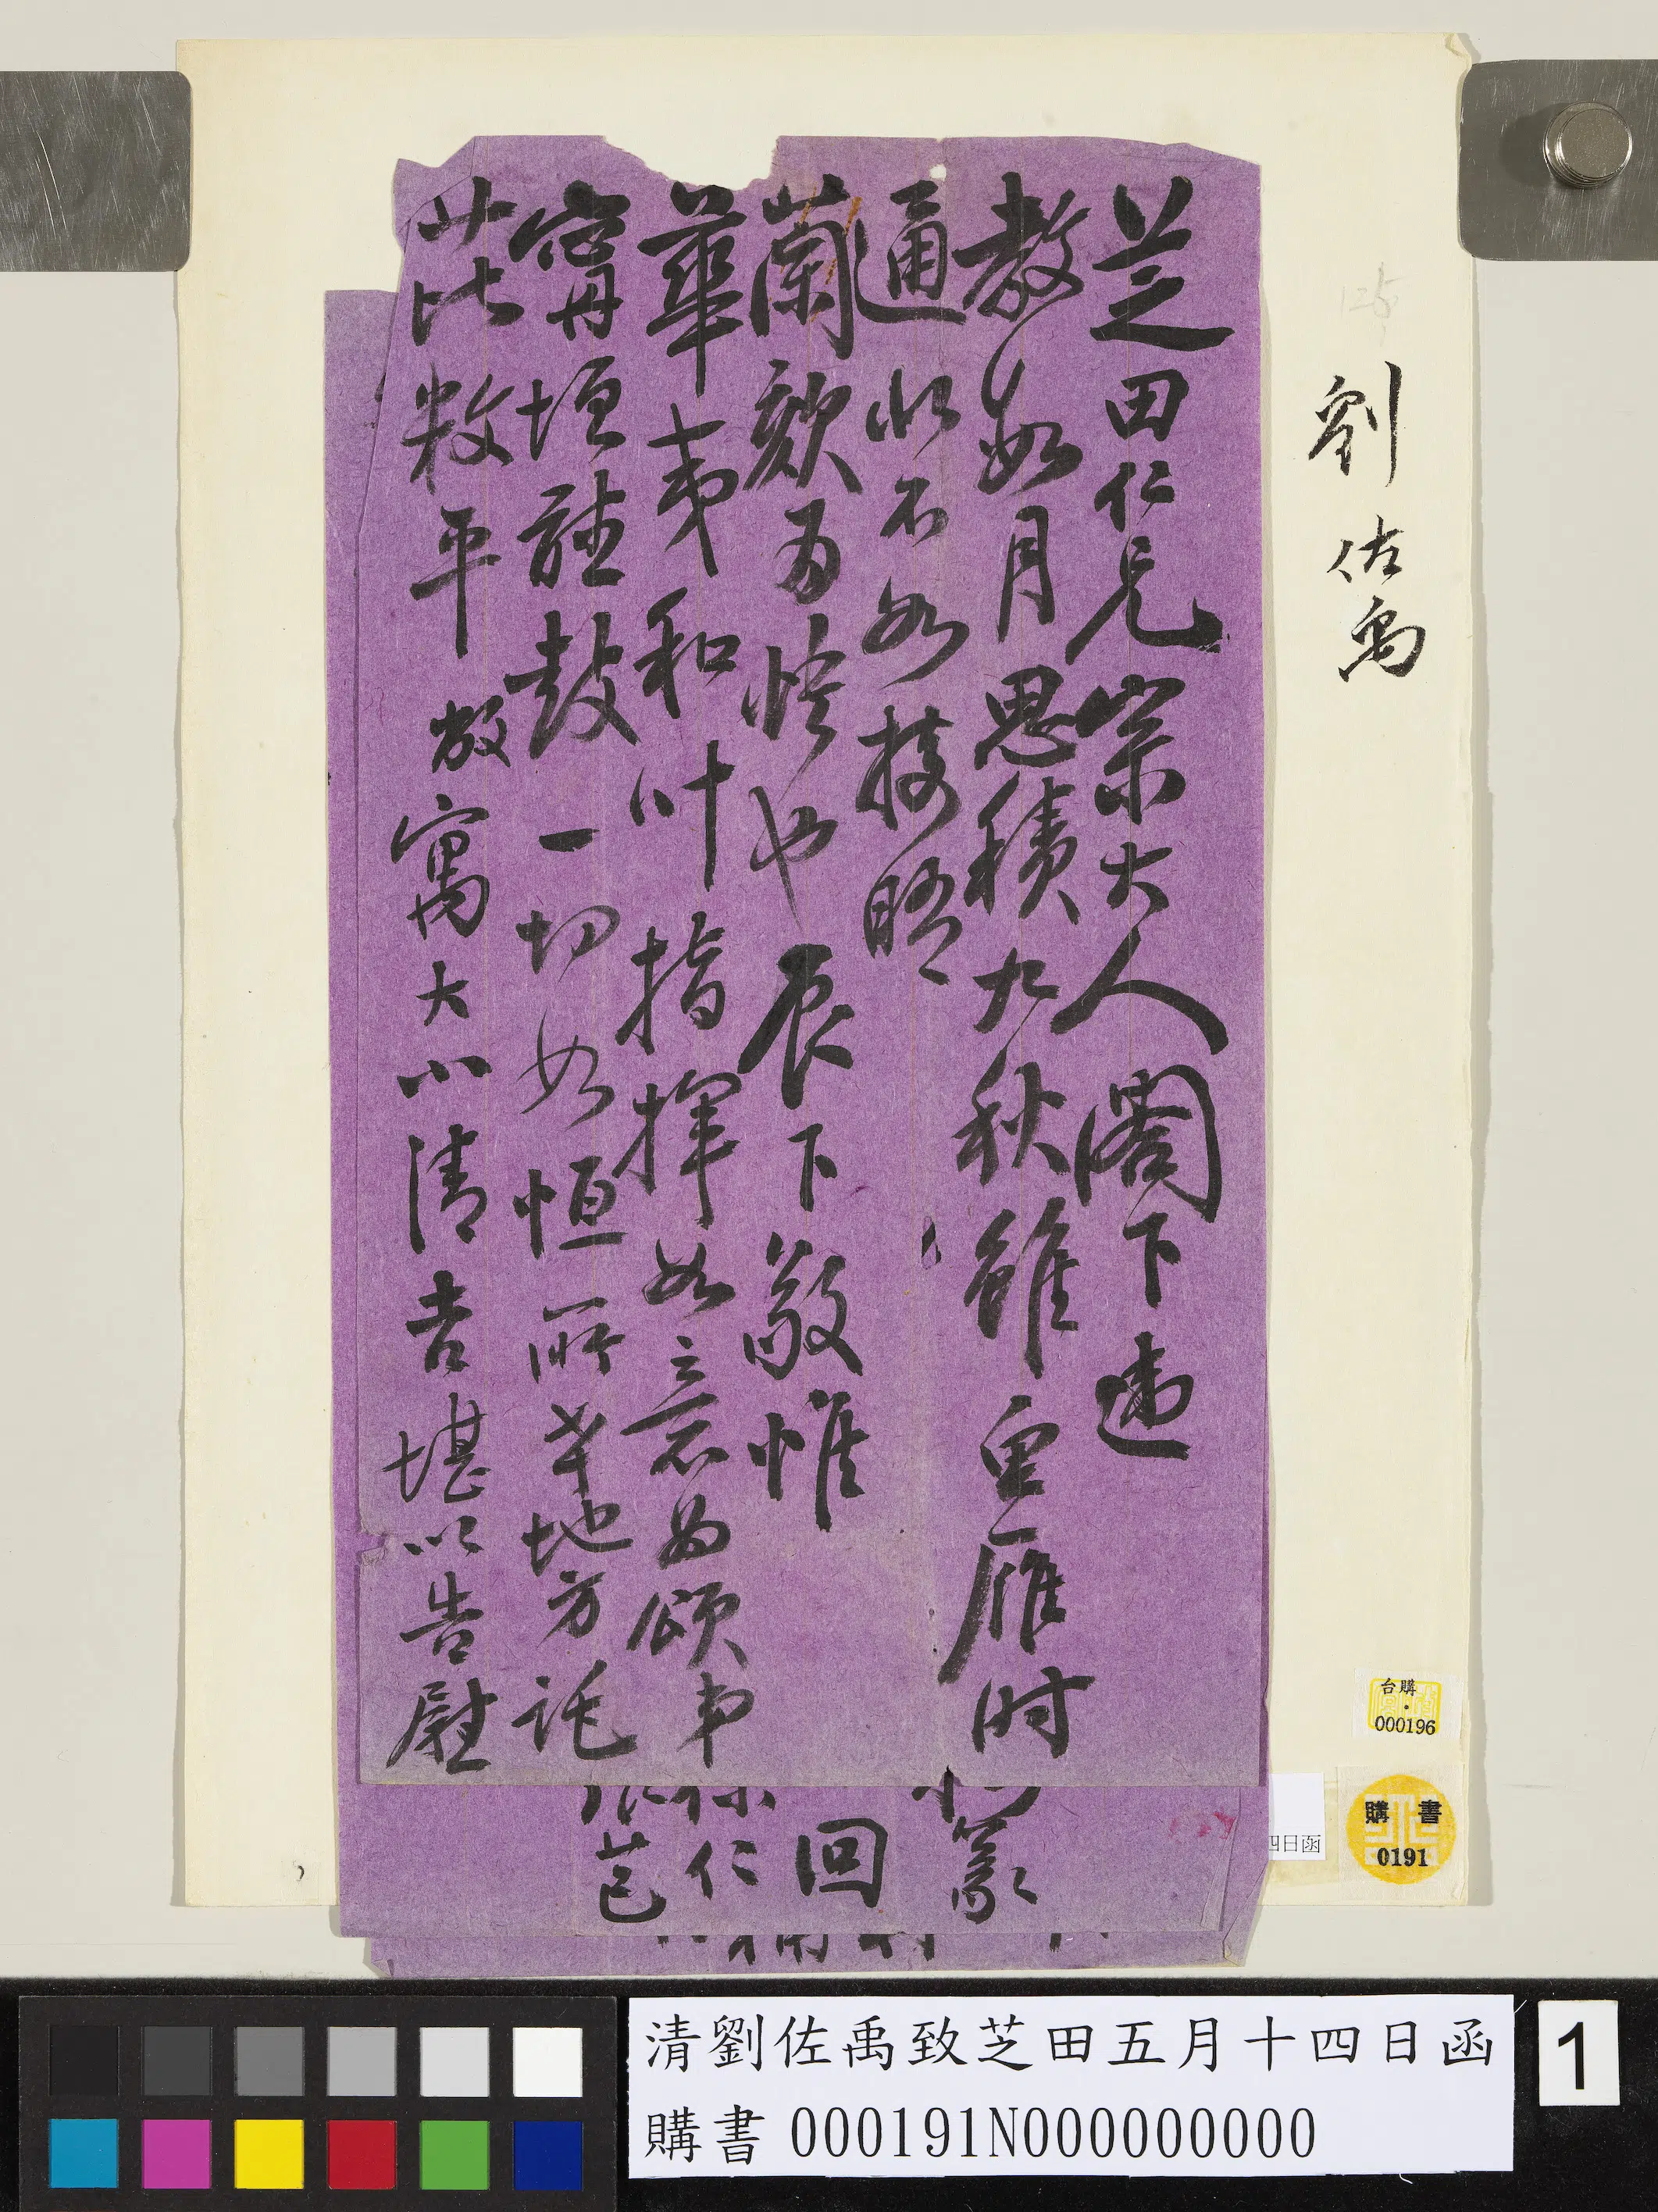 劉佐禹
芝田仁兄宗大人閣下違
教數月思積九秋雖重雁时
通此不如接晤
蘭歎为悵也辰下敬惟
華夷和叶指揮如意为頌弟
甯垣聽鼓一切如恆所幸地方託
芘敉平敝寓大小清吉堪以告慰
篆
回
仁
芭
台購·
000196
購書
0191
四日函
清劉佐禹致芝田五月十四日函
購書 000191N000000000
1